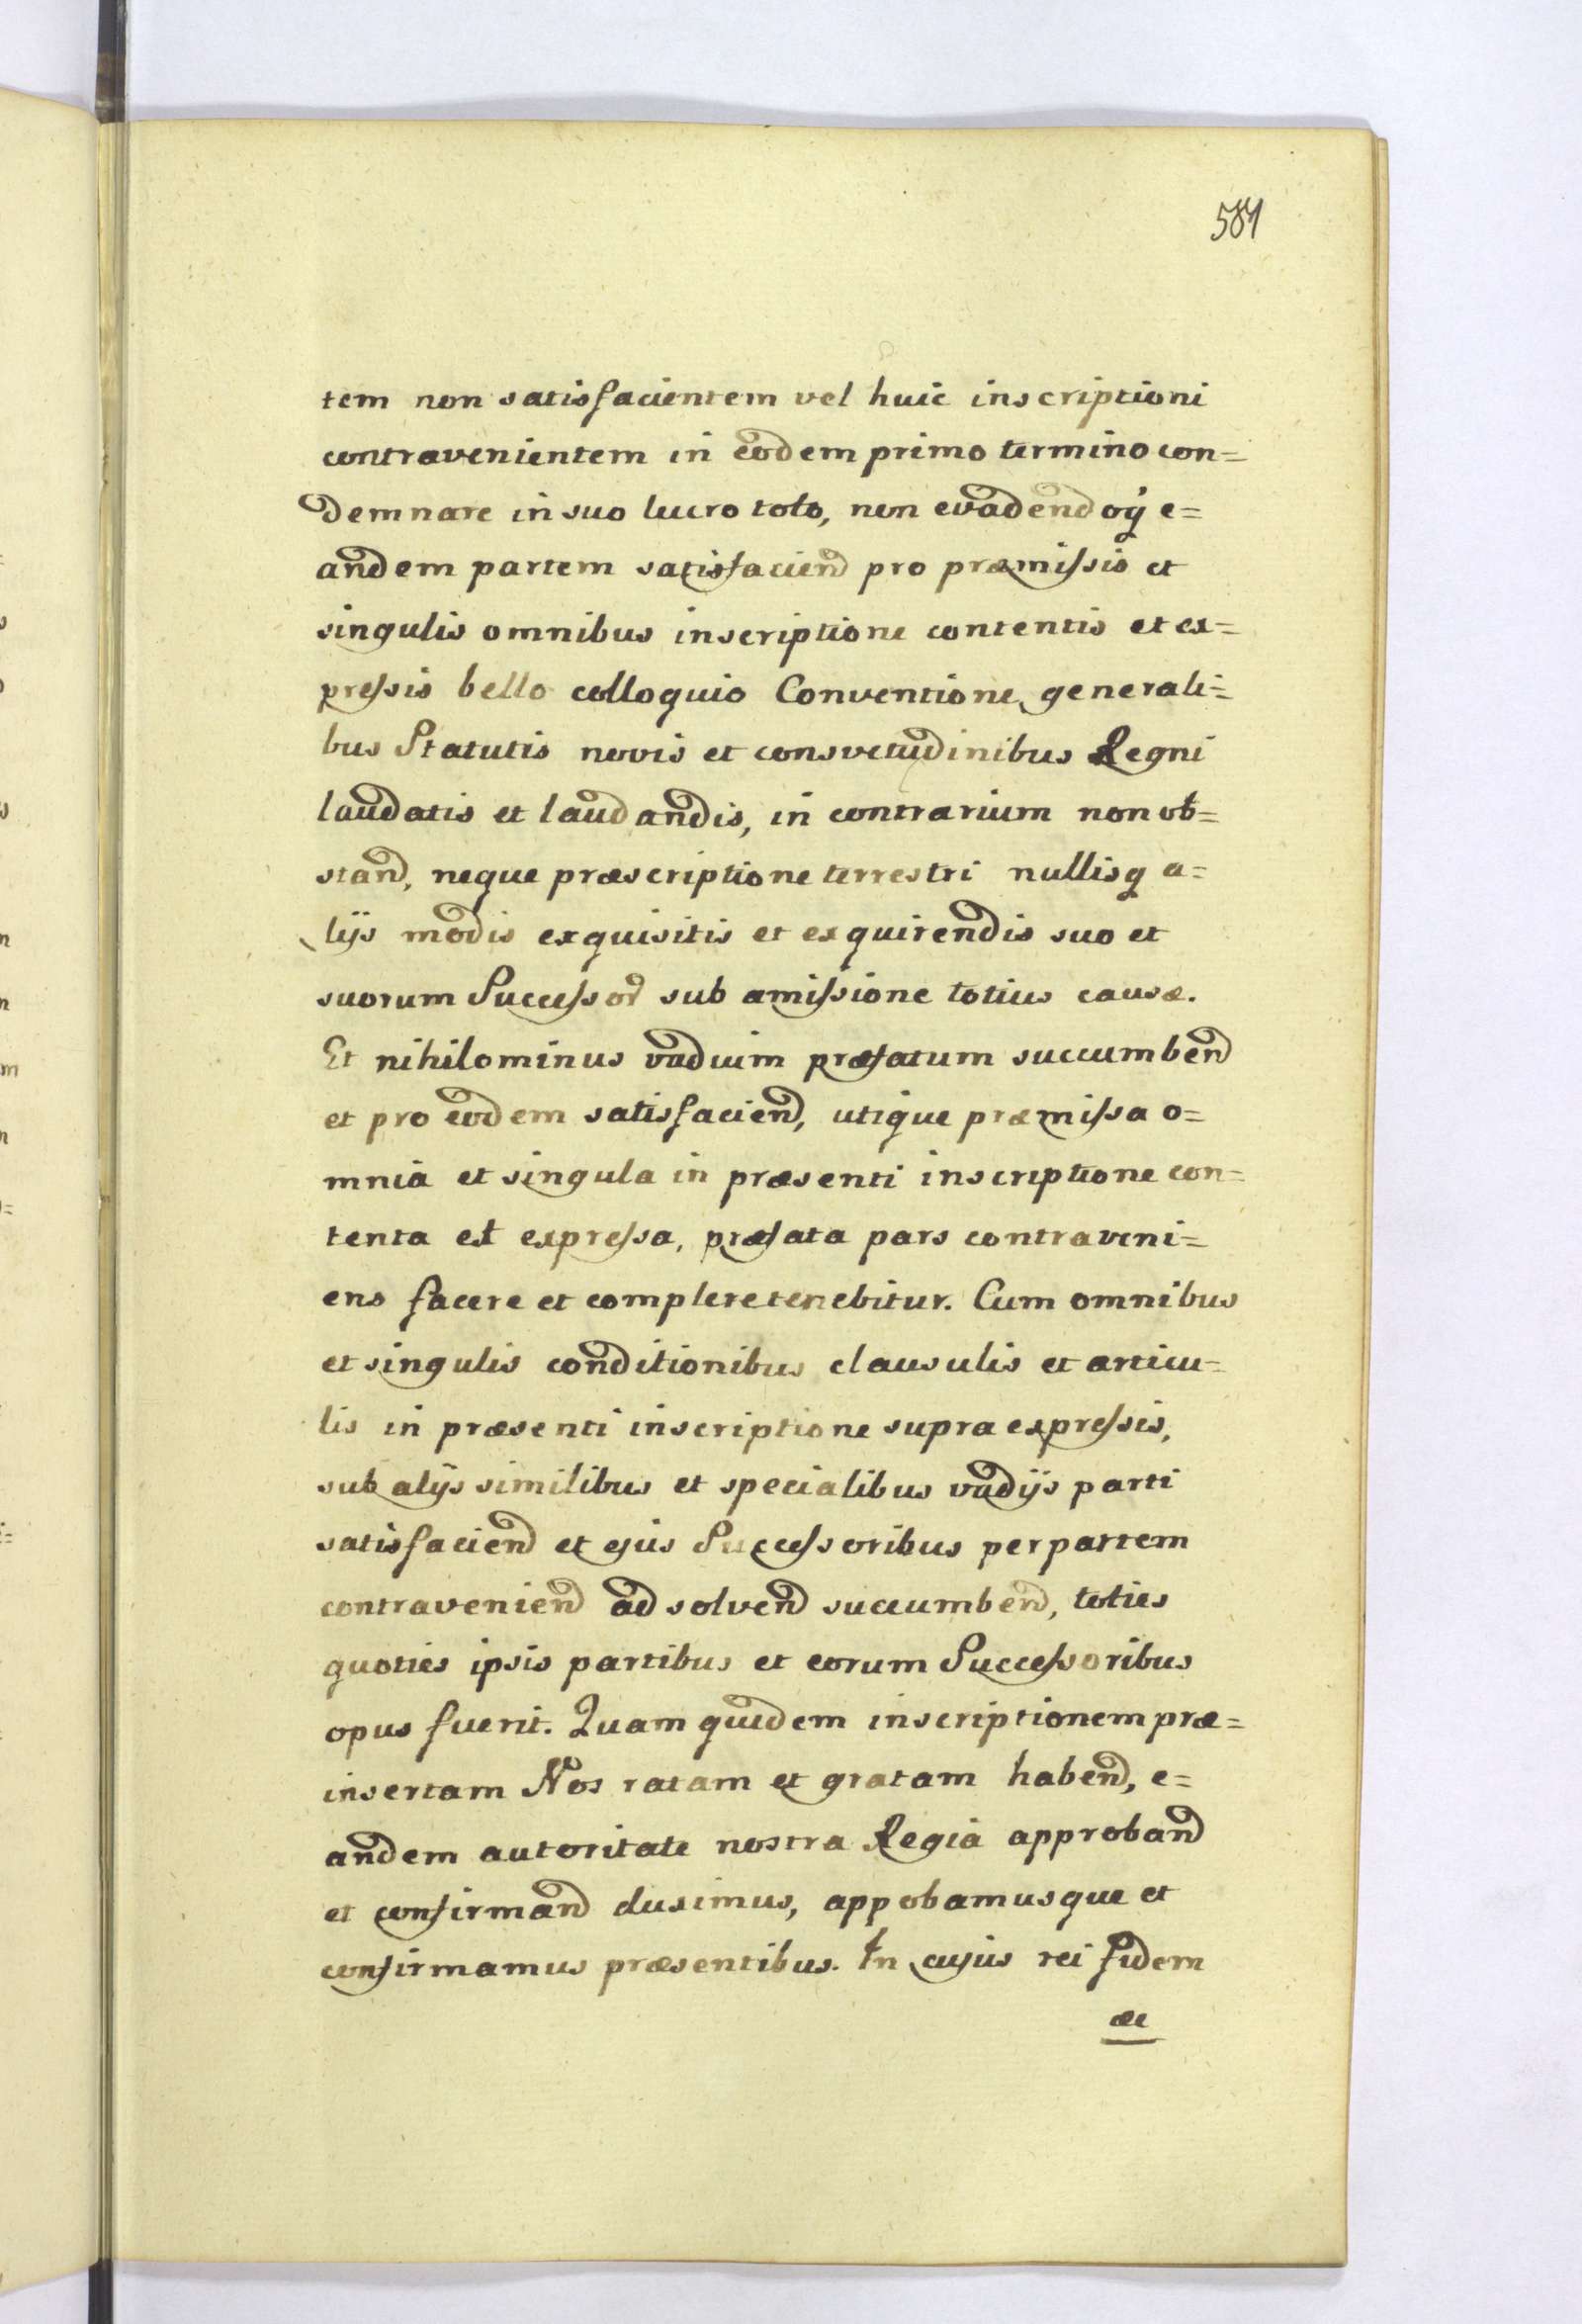 584
tem non satisfacientem vel huic inscriptioni
contravenientem in eodem primo termino con=
demnare in suo lucro toto, non evadend oq̃ e=
andem partem satisfaciend pro præmissis et
singulis omnibus inscriptione contentis et ex=
pressis bello colloquio Conventione generali=
bus Statutis novis et consvetudinibus Regni
laudatis et laudandis, in contrarium non ob=
stand, neque præscriptione terrestri nullisq a=
lijs modis exquisitis et exquirendis suo et
suorum Successor sub amissione totius causæ.
Et nihilominus vadium præfatum succumbend
et pro eodem satisfaciend, utique præmissa o=
mnia et singula in præsenti inscriptione con=
tenta et expressa, præfata pars contraveni=
ens facere et complere tenebitur. Cum omnibus
et singulis conditionibus clausulis et articu=
lis in præsenti inscriptione supra expressis,
sub alijs similibus et specialibus vadijs parti
satisfaciend et ejus Successoribus per partem
contraveniend ad solvend succumbend, toties
quoties ipsis partibus et eorum Successoribus
opus fuerit. Quam quidem inscriptionem præ=
insertam Nos ratam et gratam habend, e=
andem autoritate nostra Regia approband
et confirmand duximus, appobamusque et
confirmamus præsentibus. In cujus rei fidem